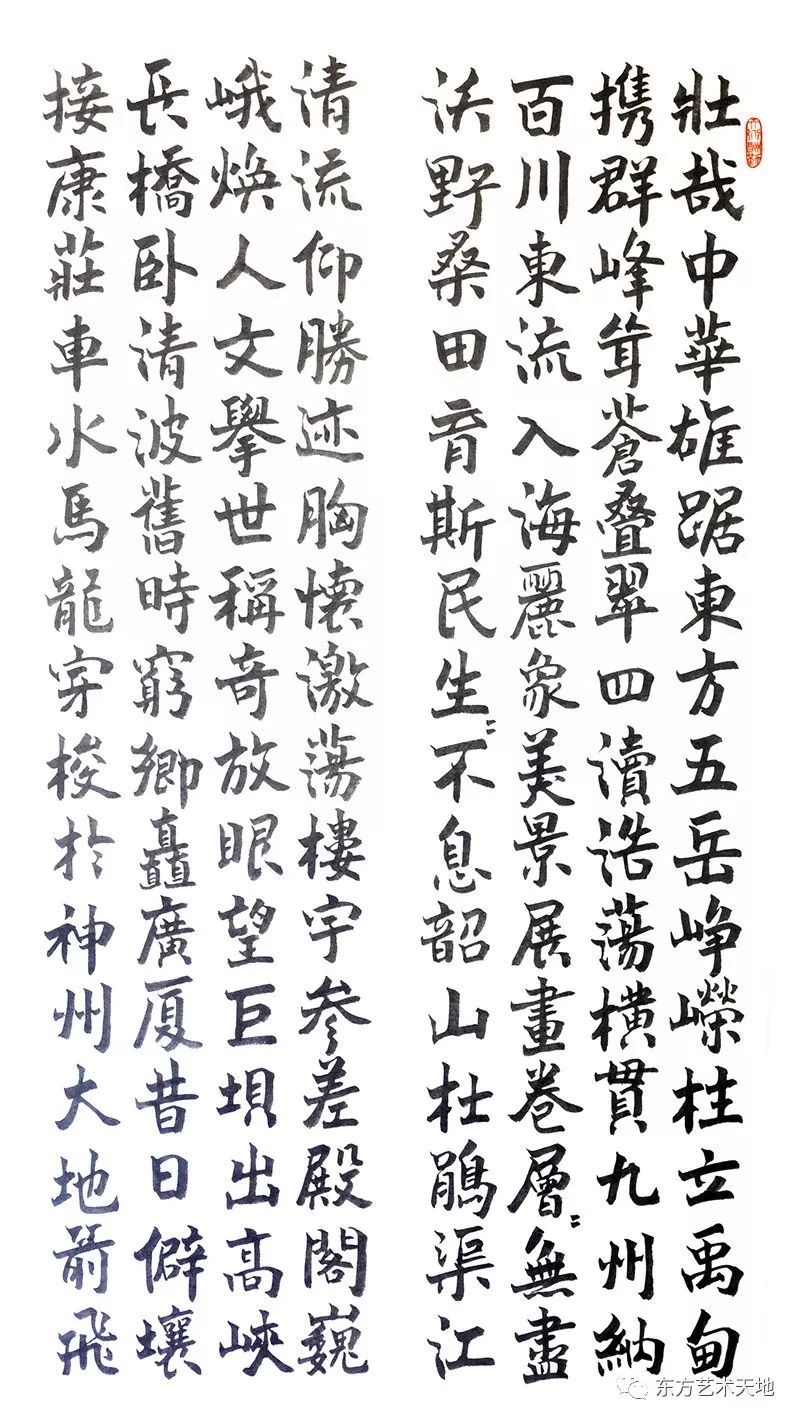 壯哉中華雄踞東方五岳峥嶸柱立禹甸
携群峰耸蒼叠翠四瀆浩蕩橫貫九州納
百川東流入海麗象美景展畫卷層〻無盡
沃野桑田育斯民生〻不息韶山杜鵑渠江
清流仰勝迹胸懷激蕩樓宇参差殿閣巍
峨焕人文舉世稱奇放眼望巨垻出高峽
長橋卧清波舊時窮鄉矗廣厦昔日僻壤
接康莊車水馬龍穿梭於神州大地箭飛
东方艺术天地